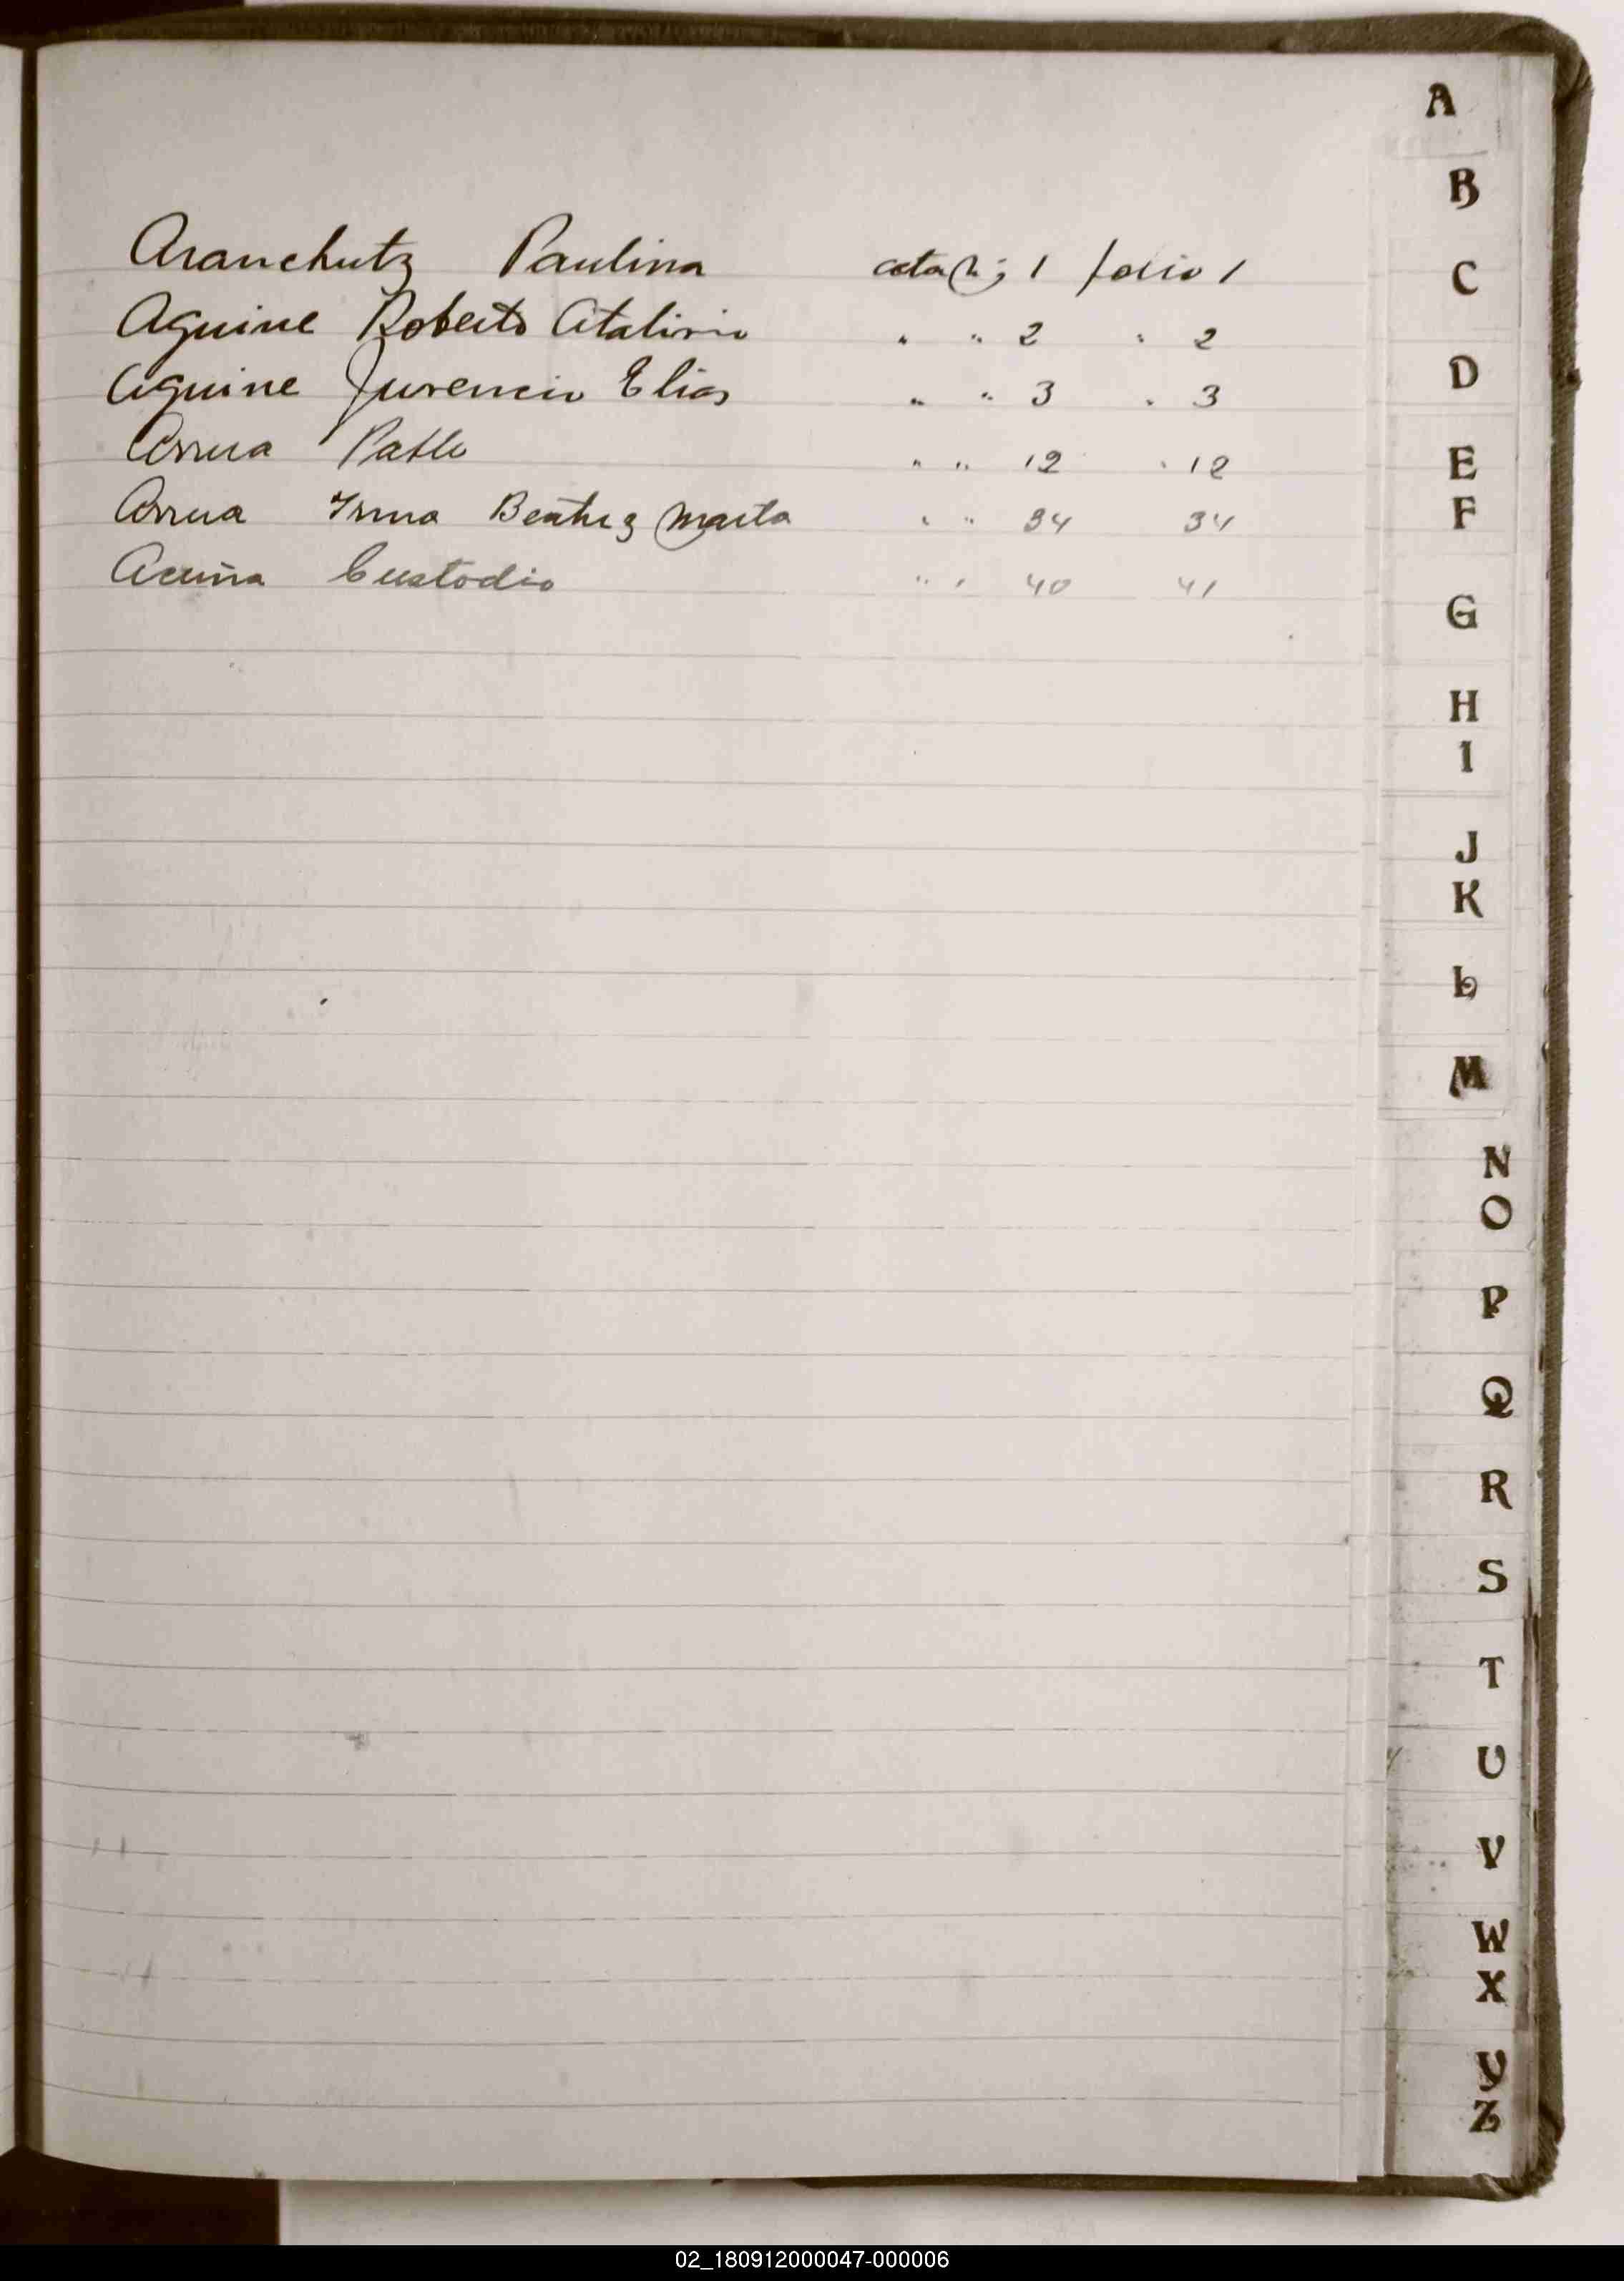 Aranchutz Paulina acta N; 1 folio 1
Aguirre Roberto Atalivio " " 2 " 2
Aguirre Juvencio Elias " " 3 " 3
Arrua Pablo " " 12 " 12
Arrua Irma Beatriz Marta " " 34 34
Acuña Custodio " " 40 41
A
B
C
D
E
F
G
H
I
J
K
L
M
N
O
P
Q
R
S
T
U
V
W
X
Y
Z
02_180912000047-000006